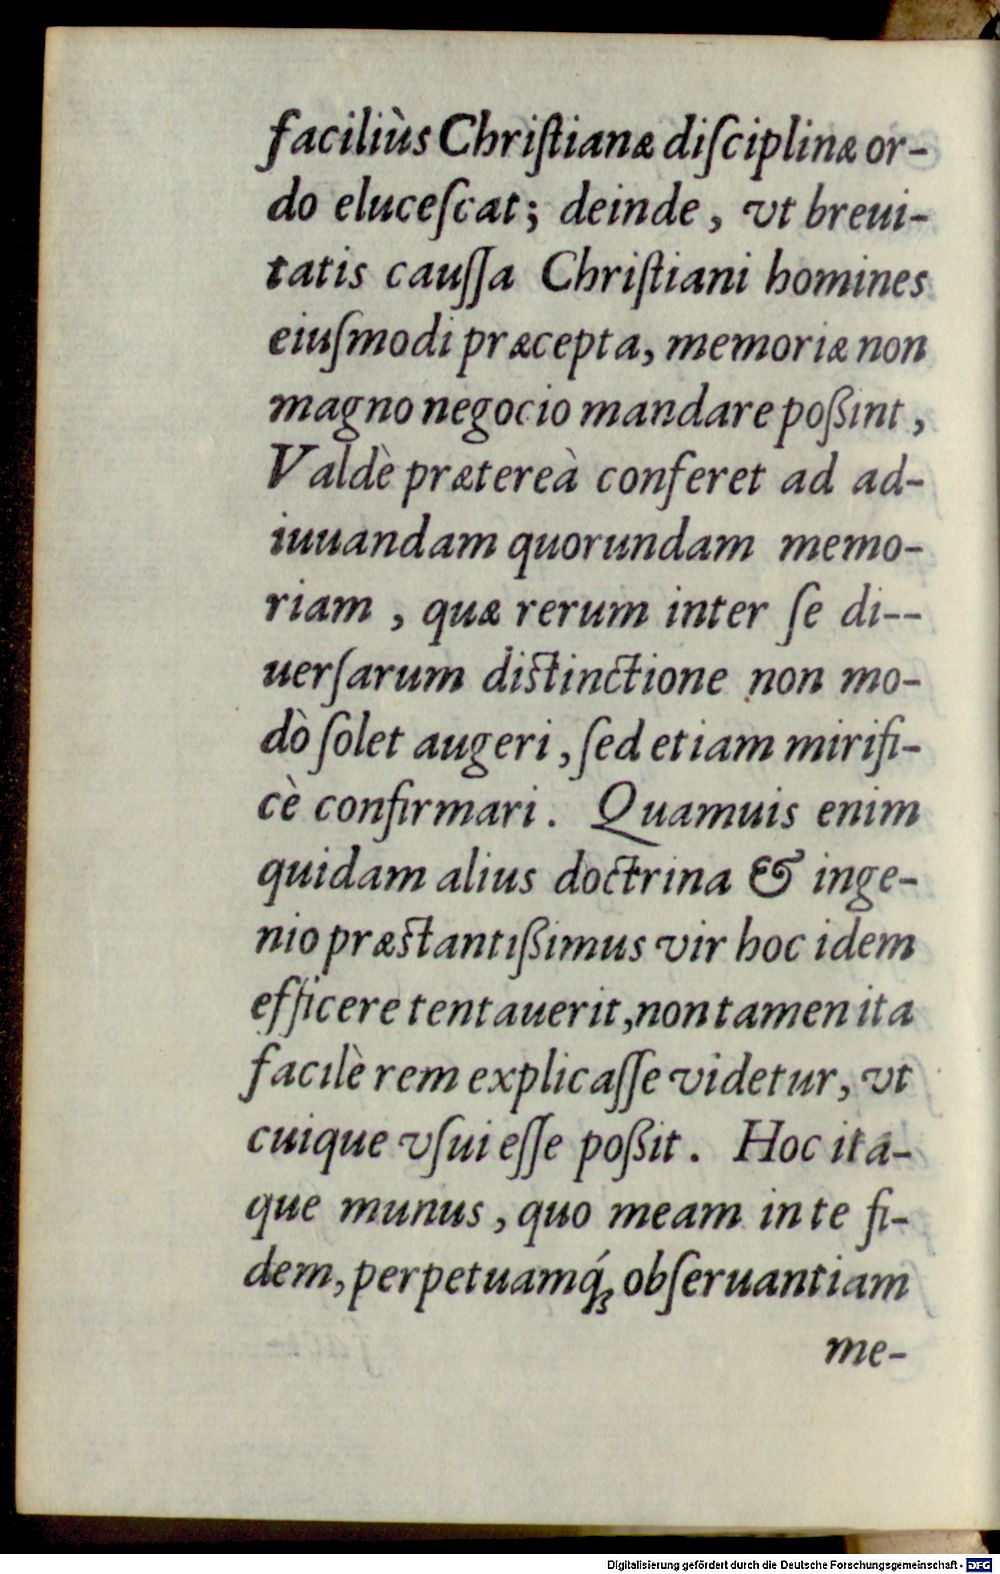 faciliùs Chriſtianæ diſciplinæ or-
do eluceſcat; deinde, vt breui-
tatis cauſſa Chriſtiani homines
eiuſmodi præcepta, memoriæ non
magno negocio mandare poßint,
Valdè prætereà conferet ad ad-
iuuandam quorundam memo-
riam, quæ rerum inter ſe di--
uerſarum distinctione non mo-
dò ſolet augeri, ſed etiam mirifi-
cè confirmari. Quamuis enim
quidam alius doctrina & inge-
nio præstantißimus vir hoc idem
efficere tentauerit, non tamen ita
facilè rem explicaſſe videtur, vt
cuique vſui eſſe poßit. Hoc ita-
que munus, quo meam in te fi-
dem, perpetuamq́; obſeruantiam
me-
Digitalisierung gefördert durch die Deutsche Forschungsgemeinschaft - DFG